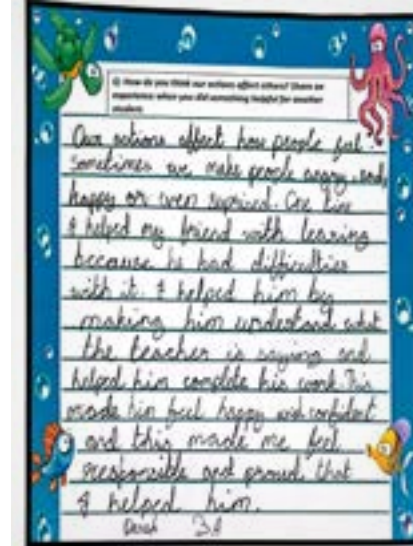 Q: How do you think our actions affect others? Share an
experience when you did something helpful for another
student.
Our actions affect how people feel.
Sometimes we make people angry, sad,
happy or even suprised. One time
I helped my friend with learing
because he had difficulties
with it. I helped him by
making him understand what
the teacher is saying and
helped him complete his work. This
made him feel happy and confident
and this made me feel
responsible and proud that
I helped him.
3A